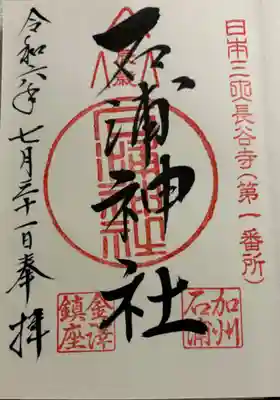 日本三 長谷寺(第一番所)
加州
石浦
石浦神社
金澤
鎮座
令和六年七月三十一日奉拝